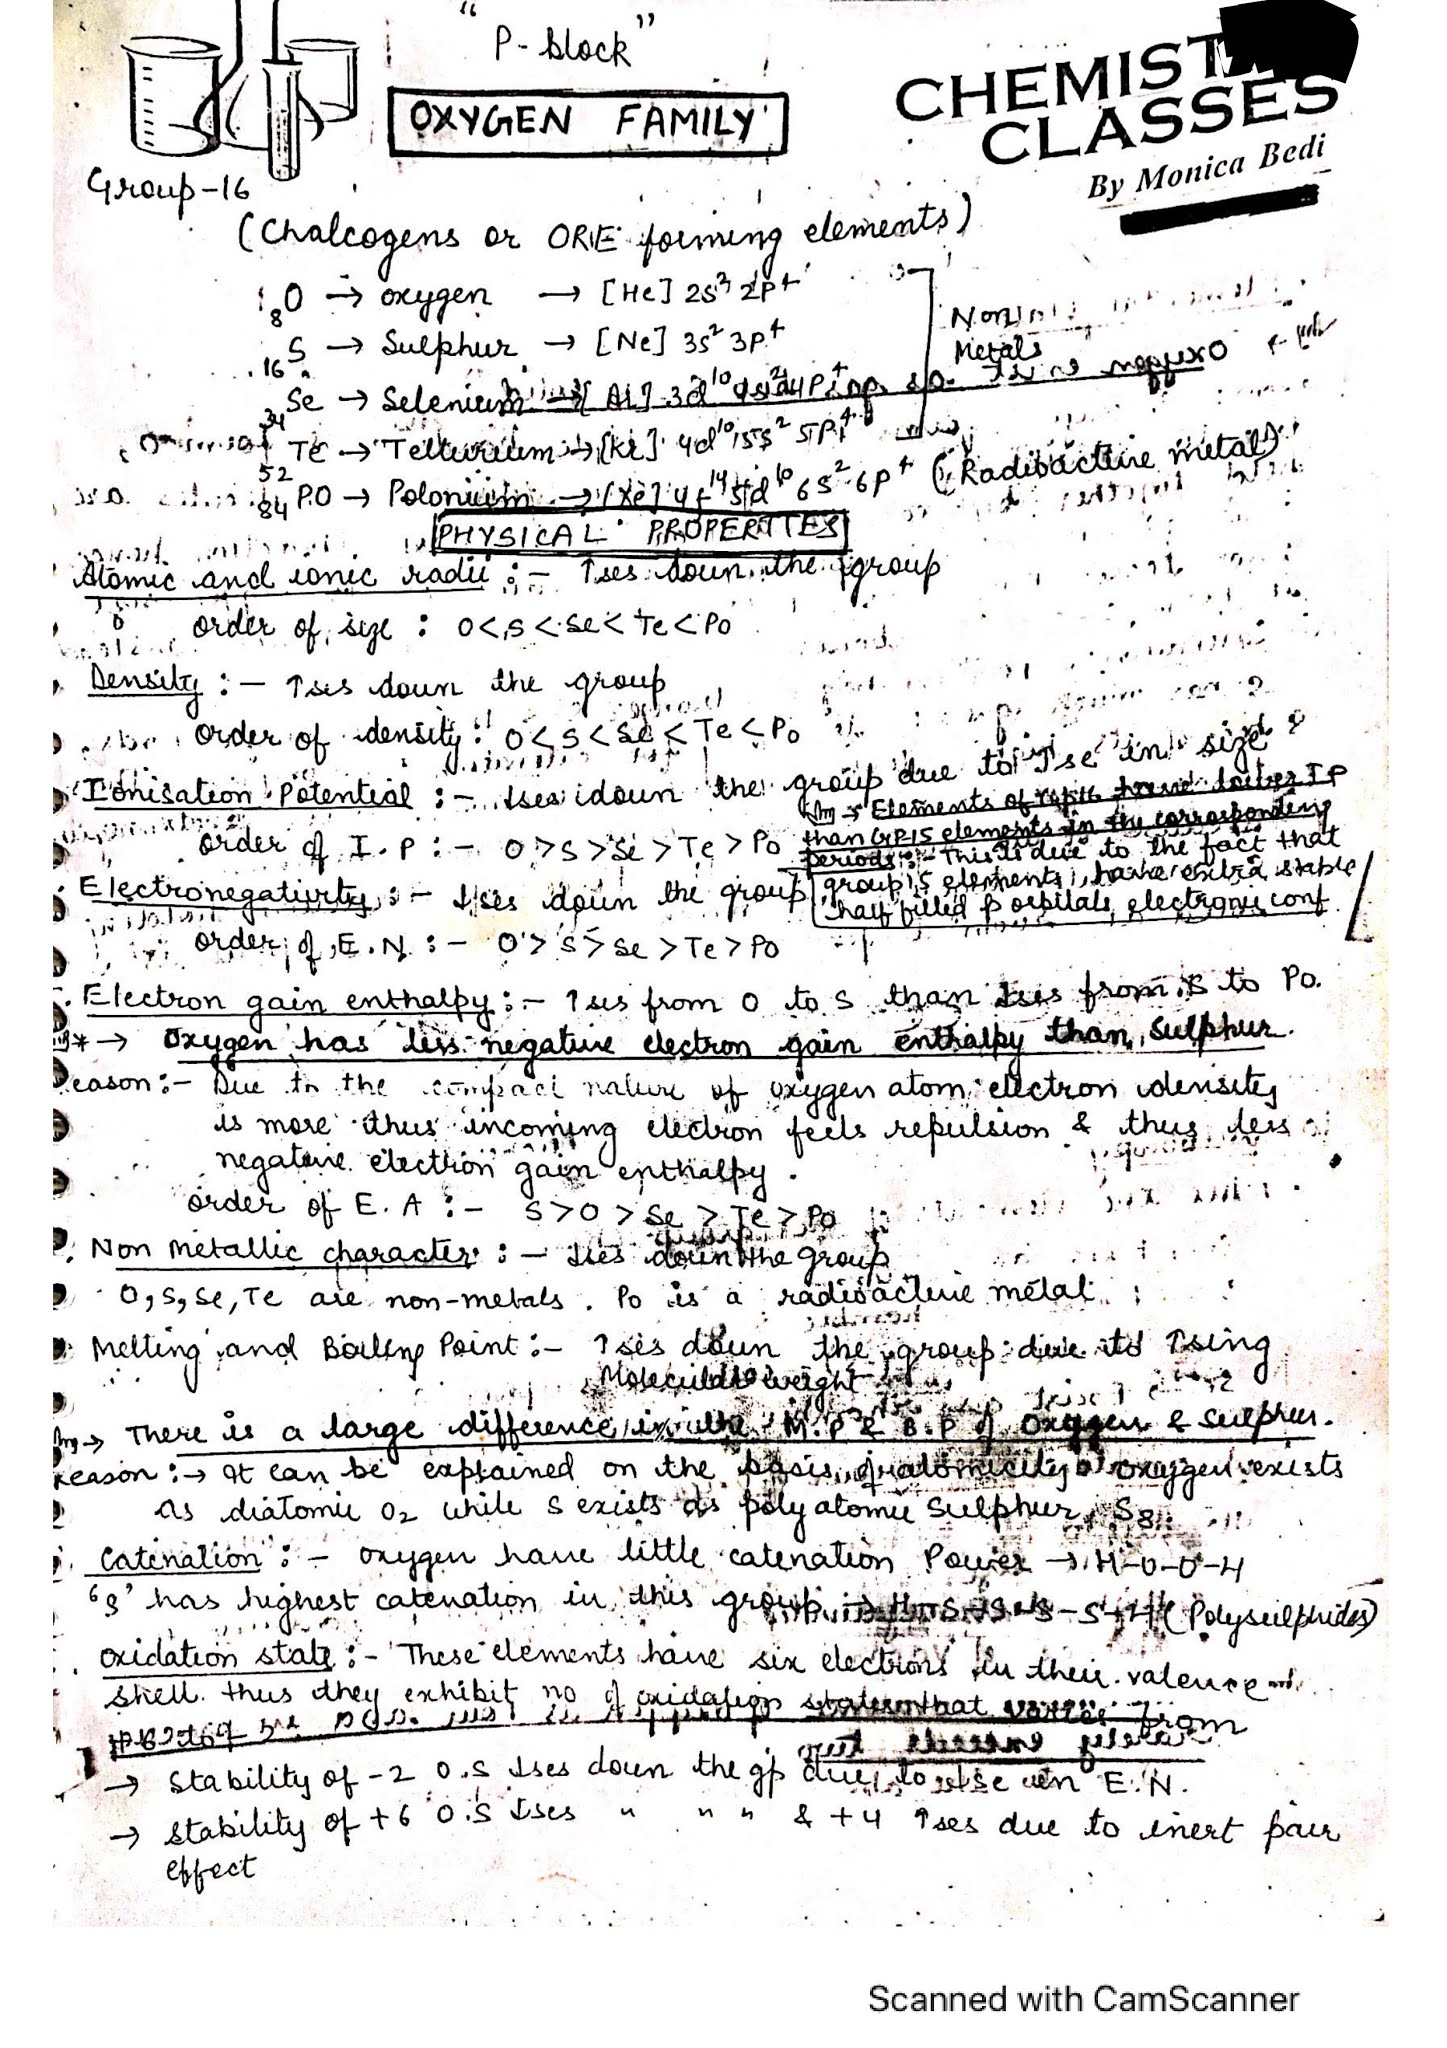 "P-block"
OXYGEN FAMILY
CHEMIST
CLASSES
By Monica Bedi
Group-16
(Chalcogens or ORE forming elements)
8 O → oxygen → [He] 2s² 2p⁴
16 S → Sulphur → [Ne] 3s² 3p⁴
Non
Metals
34 Se → Selenium → [Ar] 3d¹⁰ 4s² 4p⁴
52 Te → Tellurium → [Kr] 4d¹⁰ 5s² 5p⁴
84 PO → Polonium → [Xe] 4f¹⁴ 5d¹⁰ 6s² 6p⁴ (Radioactive metal)
PHYSICAL PROPERTIES
Atomic and ionic radii :- ↑ses down the group
order of size : O<S<Se<Te<Po
Density :- ↑ses down the group
order of density : O<S<Se<Te<Po
Ionisation Potential :- ↓ses down the group due to ↑se in size
order of I.P :- O>S>Se>Te>Po
Img → Elements of gp16 have lower IP
than GP15 elements in the corresponding
periods :- This is due to the fact that
group 15 elements have extra stable
half filled p orbitals electronic conf.
Electronegativity :- ↓ses down the group
order of E.N :- O>S>Se>Te>Po
Electron gain enthalpy :- ↑ses from O to S than ↓ses from S to Po.
* → Oxygen has less negative electron gain enthalpy than Sulphur.
eason :- Due to the compact nature of oxygen atom electron density
is more thus incoming electron feels repulsion & thus less
negative electron gain enthalpy.
order of E.A :- S>O>Se>Te>Po
Non metallic character :- ↓ses down the group
O, S, Se, Te are non-metals. Po is a radioactive metal
Melting and Boiling Point :- ↑ses down the group due to ↑sing
Molecular weight
Img → There is a large difference in the M.P & B.P of Oxygen & Sulphur.
eason :→ It can be explained on the basis of atomicity oxygen exists
as diatomic O₂ while S exists as polyatomic Sulphur S₈.
Catenation :- oxygen have little catenation Power → H-O-O-H
'S' has highest catenation in this group → H-S-S-S-S-H (Polysulphides)
Oxidation state :- These elements have six electrons in their valence
shell thus they exhibit no of oxidation states that varies from
→ Stability of -2 O.S ↓ses down the gp due to ↓se in E.N.
→ Stability of +6 O.S ↓ses " " " & +4 ↑ses due to inert pair
effect
Scanned with CamScanner